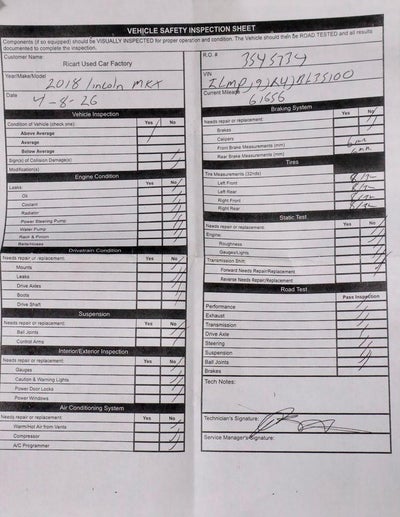 VEHICLE SAFETY INSPECTION SHEET
Components (if so equipped) should be VISUALLY INSPECTED for proper operation and condition. The Vehicle should then be ROAD TESTED and all results
documented to complete the inspection.
Customer Name:
Ricart Used Car Factory
Year/Make/Model
2018 Lincoln MKX
Date
4-8-26
Vehicle Inspection
Condition of Vehicle (check one) Yes No
Above Average
Average
Below Average
Sign(s) of Collision Damage(s)
Modification(s)
Engine Condition
Leaks: Yes No
Oil
Coolant
Radiator
Power Steering Pump
Water Pump
Rack & Pinion
Belts/Hoses
Drivetrain Condition
Needs repair or replacement: Yes No
Mounts
Leaks
Drive Axles
Boots
Drive Shaft
Suspension
Needs repair or replacement: Yes No
Ball Joints
Control Arms
Interior/Exterior Inspection
Needs repair or replacement: Yes No
Gauges
Caution & Warning Lights
Power Door Locks
Power Windows
Air Conditioning System
Needs repair or replacement: Yes No
Warm/Hot Air from Vents
Compressor
A/C Programmer
R.O. #
3545734
VIN
Current Mileage
61656
Braking System
Needs repair or replacement: Yes No
Brakes
Calipers
Front Brake Measurements (mm) 6mm
Rear Brake Measurements (mm) 6mm
Tires
Tire Measurements (32nds)
Left Front 8/32
Left Rear 8/32
Right Front 8/32
Right Rear 8/32
Static Test
Needs repair or replacement: Yes No
Engine:
Roughness
Gauges/Lights
Transmission Shift:
Forward Needs Repair/Replacement
Reverse Needs Repair/Replacement
Road Test
Pass Inspection
Performance
Exhaust
Transmission
Drive Axle
Steering
Suspension
Ball Joints
Brakes
Tech Notes:
Technician's Signature:
Service Manager's Signature: